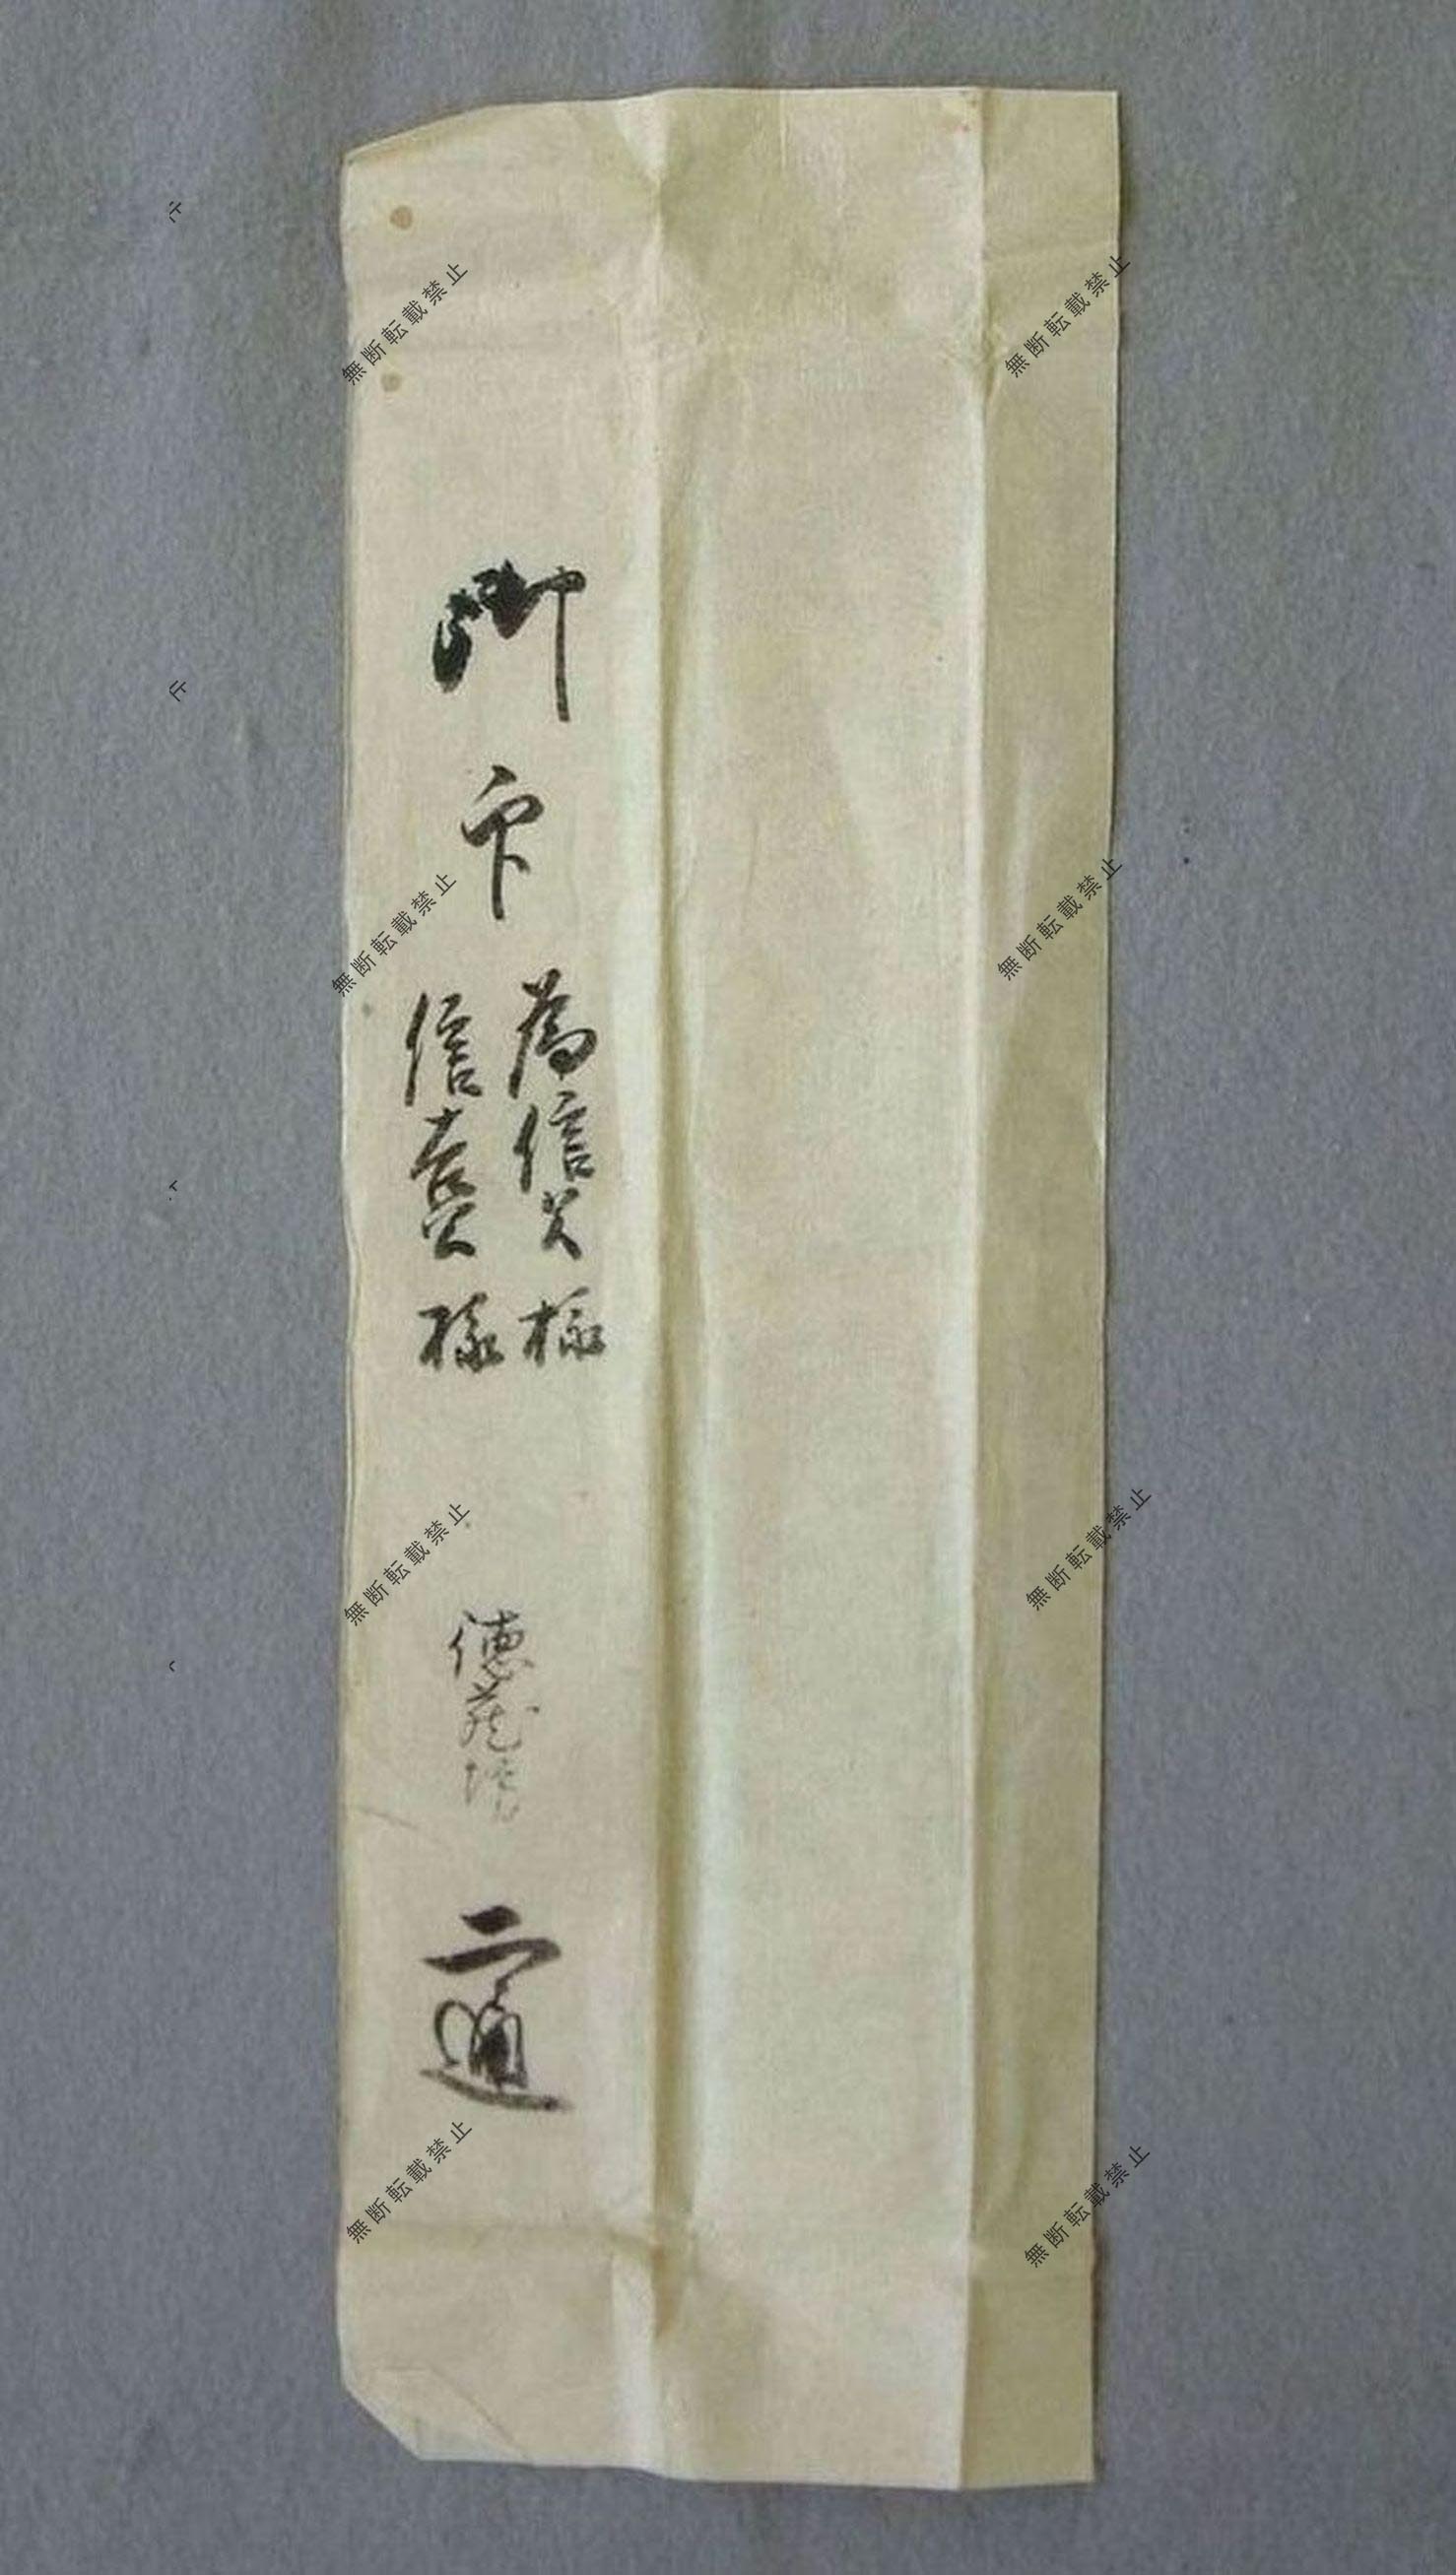 御
為信公様
信喜公様
徳蔵
二通
無断転載禁止
無断転載禁止
無断転載禁止
無断転載禁止
無断転載禁止
無断転載禁止
無断転載禁止
無断転載禁止